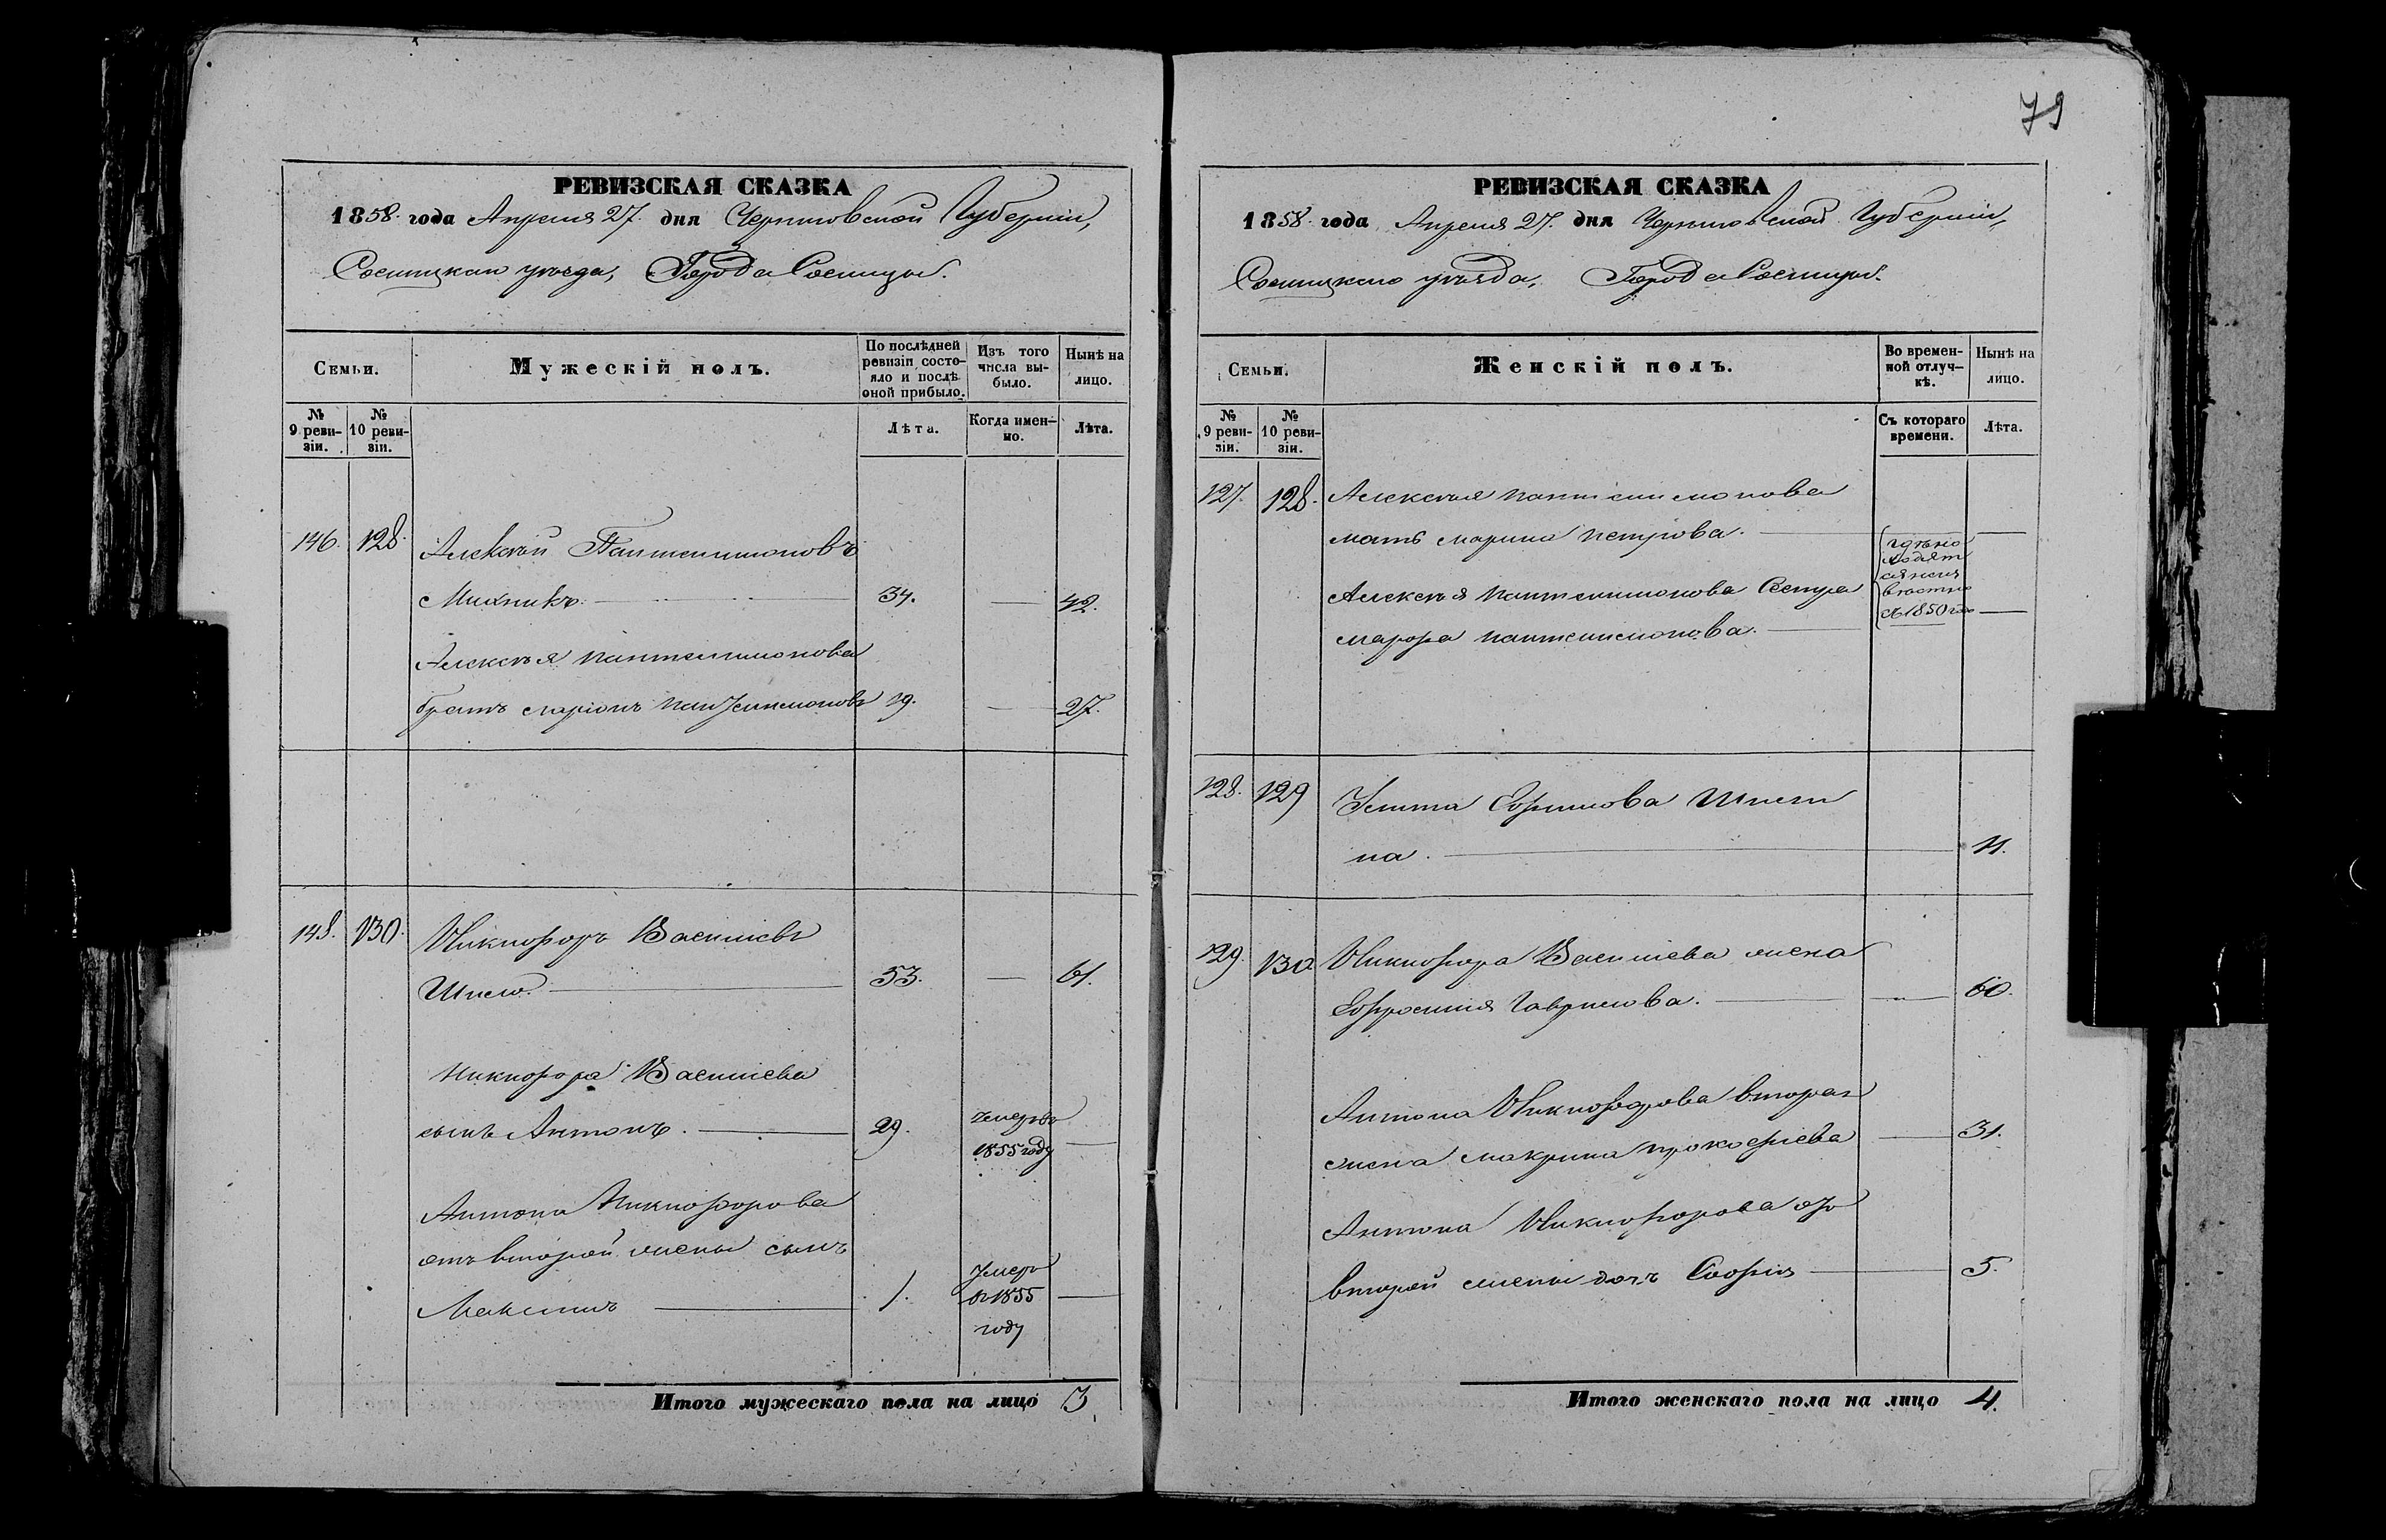 РЕВИЗСКАЯ СКАЗКА
1858. года Апреля 27. дня Черниговской Губерніи,
Сосницкаго уезда, Города Сосницы.
Семьи.
Мужескій полъ.
По последней ревизіи состояло и послѣ оной прибыло.
Изъ того числа выбыло.
Нынѣ на лицо.
№ 9 ревизіи.
№ 10 ревизіи.
Лѣта.
Когда именно.
Лѣта.
146. 128. Алексѣй Пантелимоновъ
34. — 42.
Алексѣя Пантелимонова
братъ Ларіонъ Пантелимоновъ 19. — 27.
148. 130. Никифоръ Васильевъ
Шило. 53. — 61.
Никифора Васильева
сынъ Антонъ. 29. умеръ въ 1855 году —
Антона Никифорова
отъ второй жены сынъ
Максимъ 1. умеръ въ 1855 году —
Итого мужескаго пола на лицо 3
79
РЕВИЗСКАЯ СКАЗКА
1858. года Апреля 27. дня Черниговской Губерніи,
Сосницкаго уѣзда, Города Сосницы.
Семьи.
Женскій полъ.
Во временной отлучкѣ.
Нынѣ на лицо.
№ 9 ревизіи.
№ 10 ревизіи.
Съ котораго времени.
Лѣта.
127. 128. Алексѣя Пантелимонова
мать Марина Петрова. —
Алексѣя Пантелимонова Сестра
Марфа Пантелимонова. съ 1850 года —
128. 129 Улита Ефимова Шили
на. 11.
129. 130 Никифора Васильева жена
Ефросинія Гаврилова. — 60.
Антона Никифорова вторая
жена Макрина Прокофіева — 31.
Антона Никифорова отъ
второй жены дочь Софія 5.
Итого женскаго пола на лицо 4.